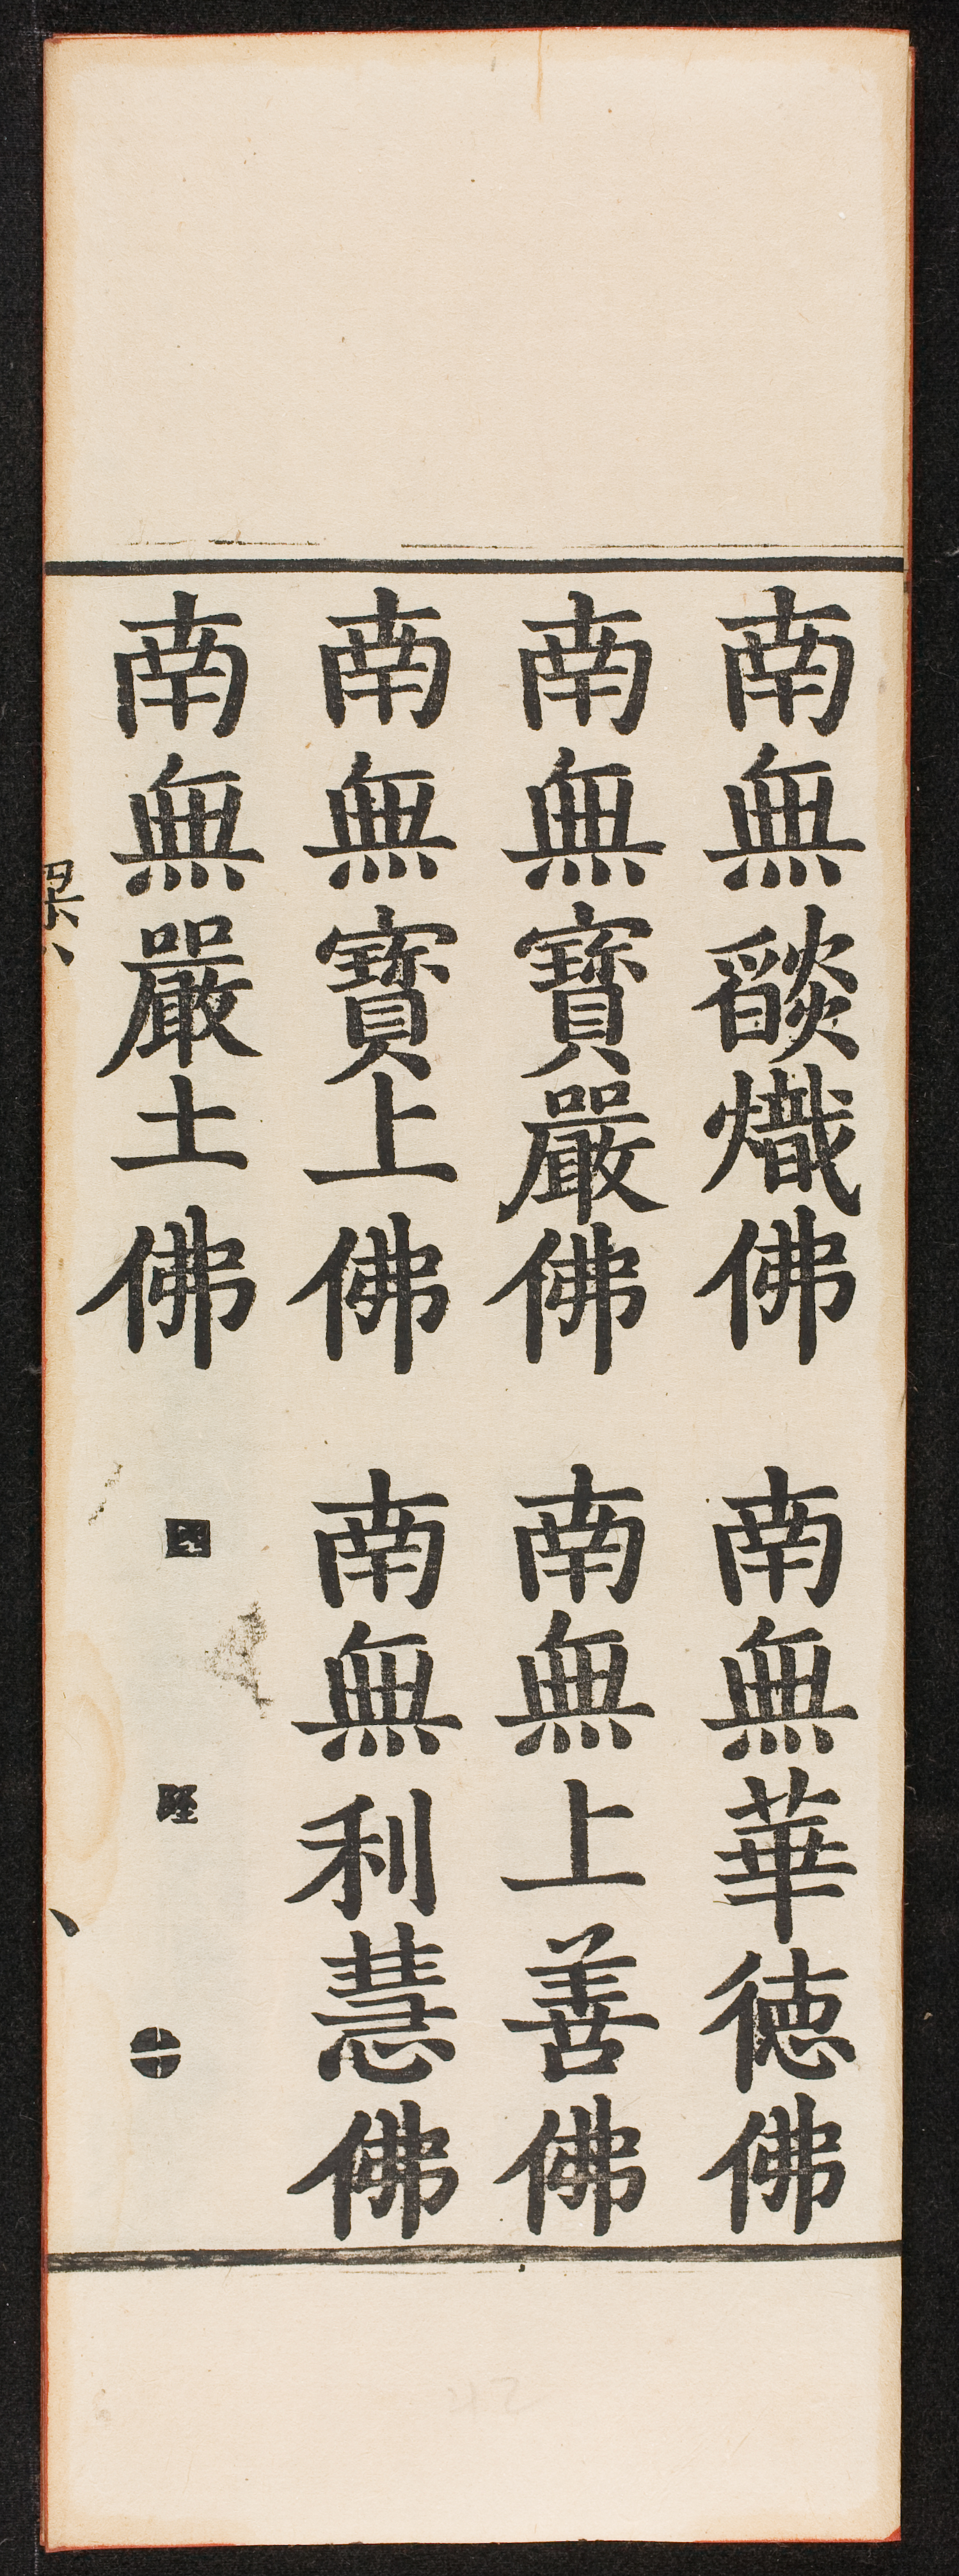 南無燄熾佛 南無華徳佛
南無寶嚴佛 南無上善佛
南無寶上佛 南無利慧佛
南無嚴土佛